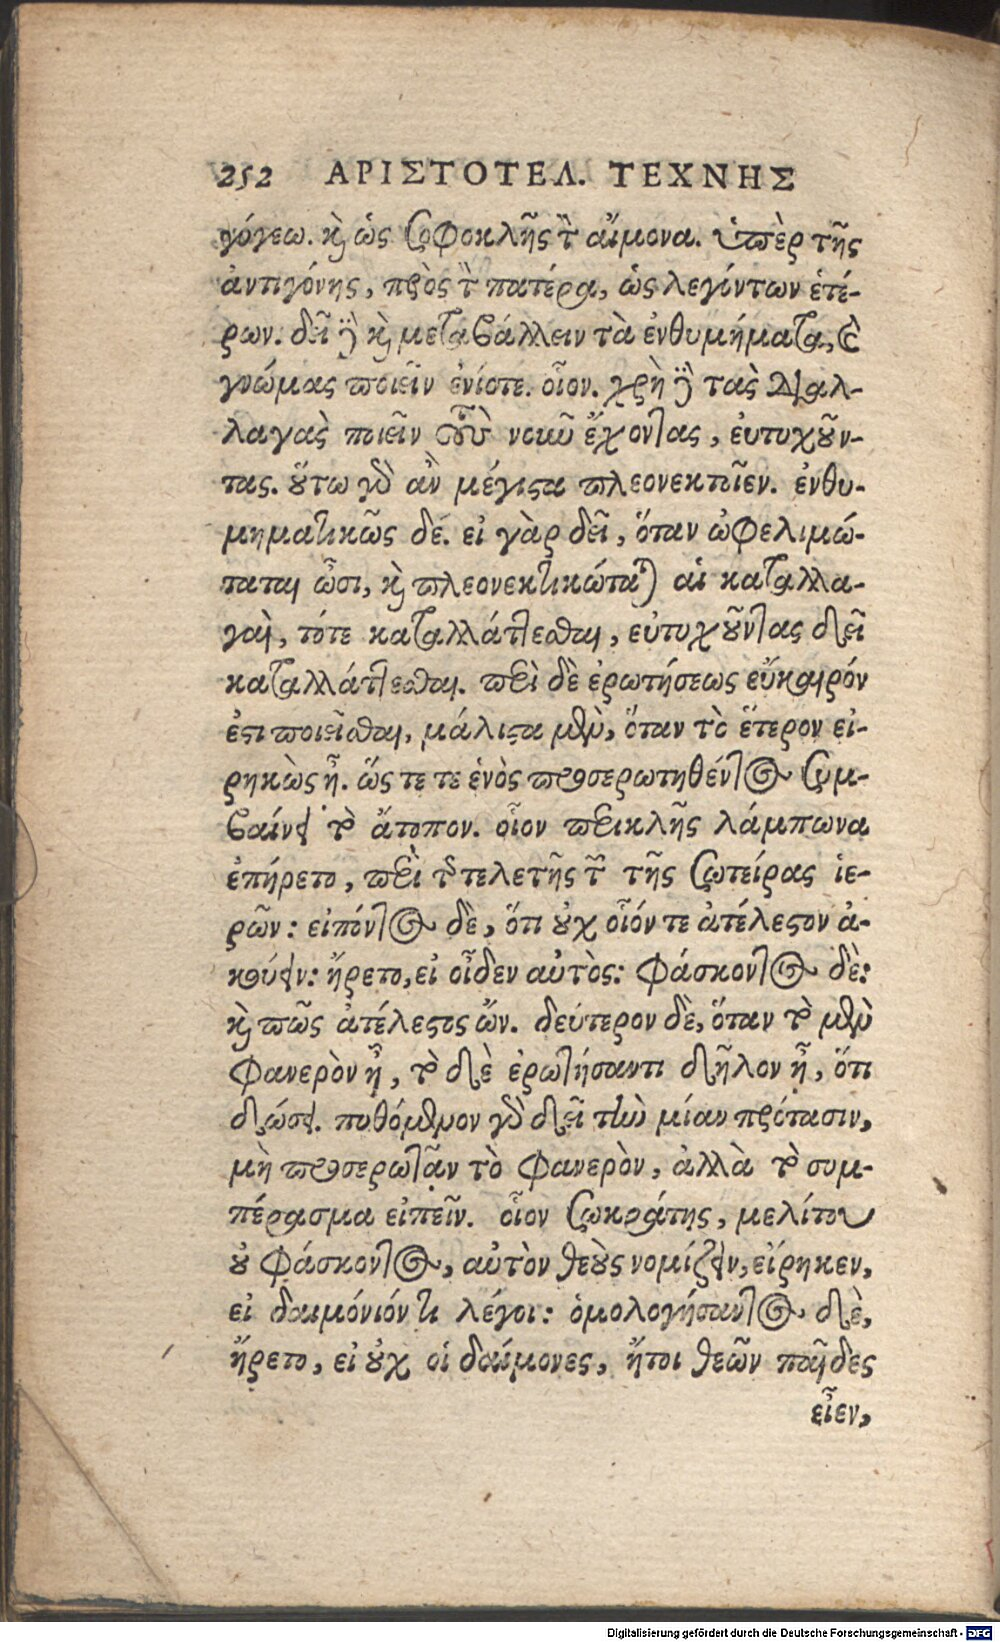 252 ΑΡΙΣΤΟΤΕΛ. ΤΕΧΝΗΣ
γόγεω. καὶ ὡς Σοφοκλῆς τὸν αἵμονα. ὑπὲρ τῆς
ἀντιγόνης, πρὸς τὸν πατέρα, ὡς λεγόντων ἑτέ-
ρων. δεῖ δὲ καὶ μεταβάλλειν τὰ ἐνθυμήματα, καὶ
γνώμας ποιεῖν ἐνίοτε. οἷον. χρὴ δὲ τὰς διαλ-
λαγὰς ποιεῖν τοὺς νοῦν ἔχοντας, εὐτυχοῦν-
τας. οὕτω γὰρ ἂν μέγιστα πλεονεκτοῖεν. ἐνθυ-
μηματικῶς δέ. εἰ γὰρ δεῖ, ὅταν ὠφελιμώ-
ταται ὦσι, καὶ πλεονεκτικώταται αἱ καταλλα-
γαὶ, τότε καταλλάττεσθαι, εὐτυχοῦντας δεῖ
καταλλάττεσθαι. περὶ δὲ ἐρωτήσεως εὔκαιρόν
ἐστι ποιεῖσθαι, μάλιστα μὲν, ὅταν τὸ ἕτερον εἰ-
ρηκὼς ᾖ. ὥς τε τε ἑνὸς προσερωτηθέντος συμ-
βαίνει τὸ ἄτοπον. οἷον περικλῆς λάμπωνα
ἐπήρετο, περὶ τῆς τελετῆς τῶν τῆς σωτείρας ἱε-
ρῶν: εἰπόντος δὲ, ὅτι οὐχ οἷόν τε ἀτέλεστον ἀ-
κούειν: ἤρετο, εἰ οἶδεν αὐτὸς: φάσκοντος δὲ:
καὶ πῶς ἀτέλεστος ὤν. δεύτερον δὲ, ὅταν τὸ μὲν
φανερὸν ᾖ, τὸ δὲ ἐρωτήσαντι δῆλον ᾖ, ὅτι
δώσει. πυθόμενον γὰρ δεῖ τὴν μίαν πρότασιν,
μὴ προσερωτᾶν τὸ φανερὸν, ἀλλὰ τὸ συμ-
πέρασμα εἰπεῖν. οἷον Σωκράτης, μελίτου
οὐ φάσκοντος, αὐτὸν θεοὺς νομίζειν, εἴρηκεν,
εἰ δαιμόνιόν τι λέγοι: ὁμολογήσαντος δὲ,
ἤρετο, εἰ οὐχ οἱ δαίμονες, ἤτοι θεῶν παῖδες
εἶεν,
Digitalisierung gefördert durch die Deutsche Forschungsgemeinschaft - DFG